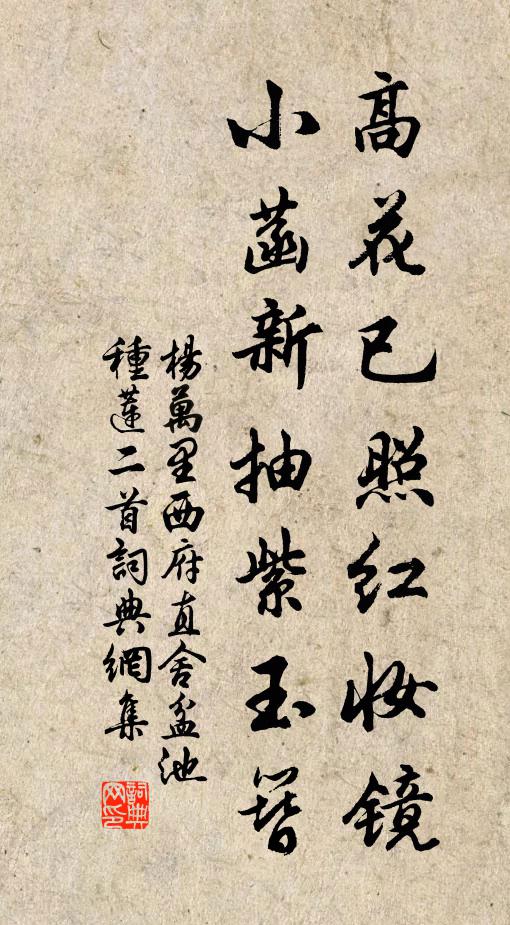 高花已照红妆镜
小菡新抽紫玉簪
楊萬里西府直舍盆池
種蓮二首詞典網集
詞典
网印